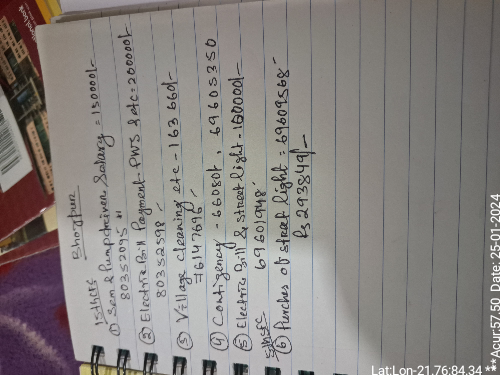 Bhojpur
15thCFC
① Sem & Pumpdriver Salary = 150000/-
80352095"
② Electric Bill Payment PWS & etc = 200000/-
80352598 -
③ Village cleaning etc - 163660/-
76147696
④ Contigency - 66080/-, 69605350
⑤ Electric Bill & Street light - 100000/-
69601948
5thSFC
⑥ Purches of street light = 69609568
Rs 293849/-
Lat:Lon-21.76:84.34
**Acur:57.50 Date: 25-01-2024